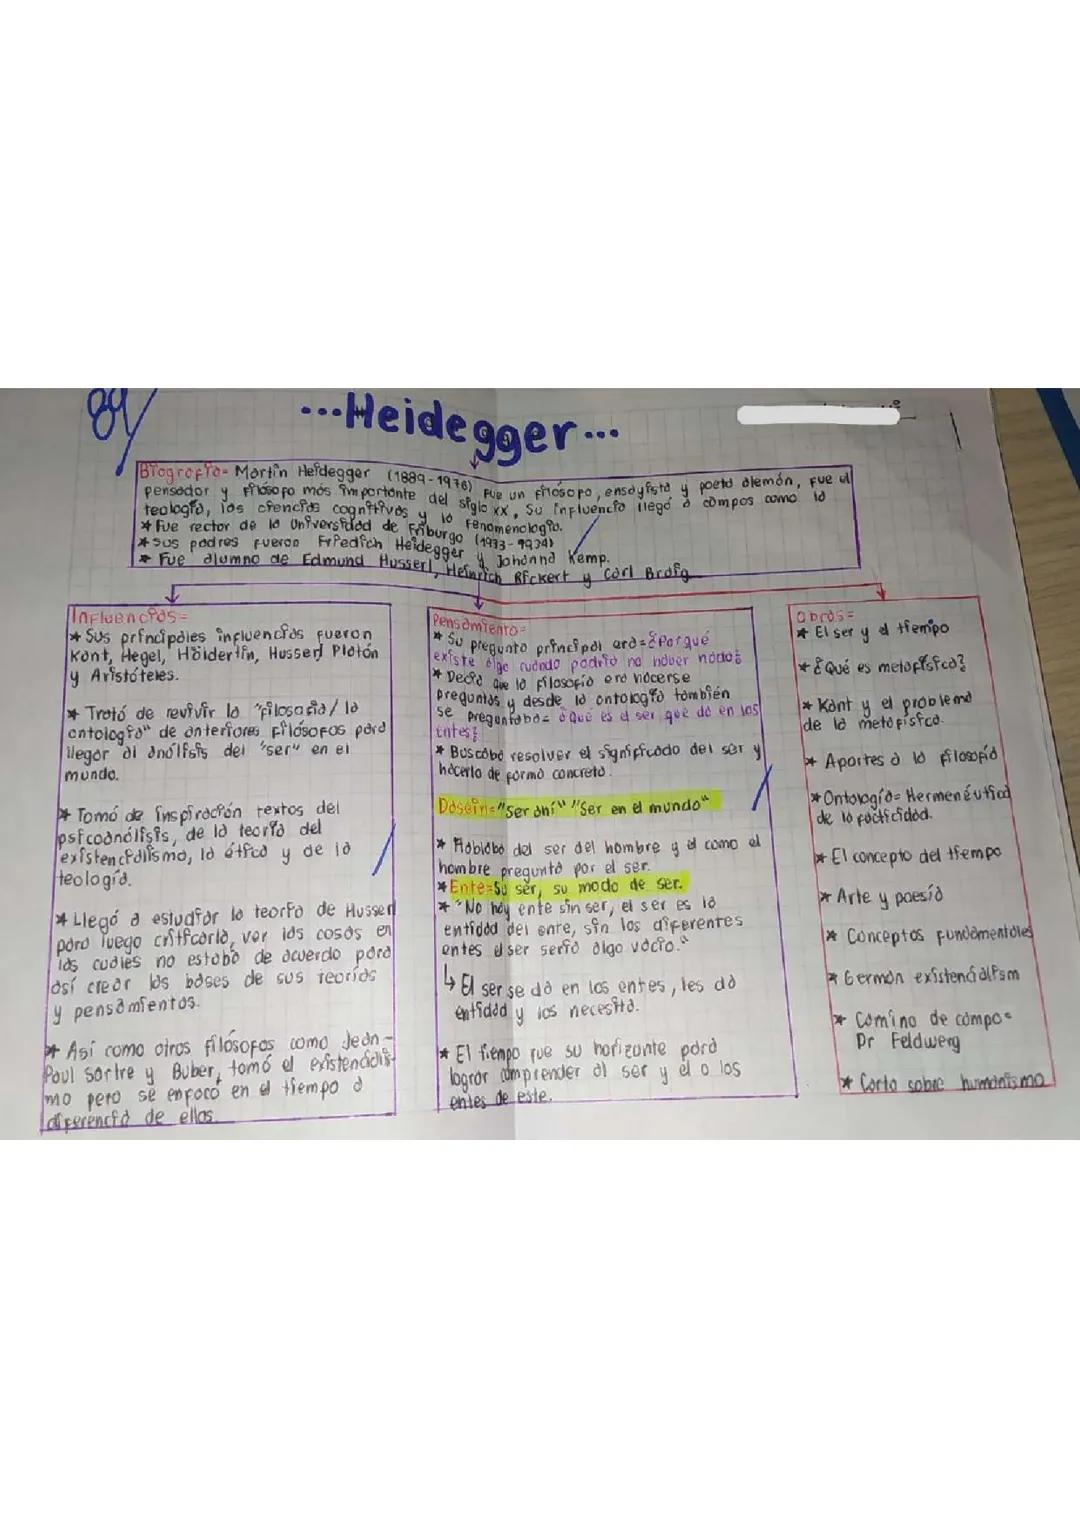 84/
...Heidegger...
Biografía= Martín Heidegger (1889-1976) Fue un filósofo, ensayista y poeta alemán, fue el
pensador y filósofo más importante del siglo XX, Su influencia llegó a campos como la
teología, las ciencias cognitivas y la fenomenología.
* Fue rector de la Universidad de Friburgo (1933-1934)
* Sus padres fueron Friedich Heidegger y Johanna Kemp.
* Fue alumno de Edmund Husserl, Heinrich Rickert y Carl Braig
Influencias=
* Sus principales influencias fueron
Kant, Hegel, Hölderlin, Husserl Platón
y Aristóteles.
* Trató de revivir la "filosofía/ la
ontología" de anteriores filósofos para
llegar al análisis del "ser" en el
mundo.
* Tomó de inspiración textos del
psicoanálisis, de la teoría del
existencialismo, la ética y de la
teología.
* Llegó a estudiar la teoría de Husserl
para luego criticarla, ver las cosas en
las cuales no estaba de acuerdo para
así crear las bases de sus teorías
y pensamientos.
* Así como otros filósofos como Jean-
Paul Sartre y Buber, tomó el existencialis-
mo pero se enfocó en el tiempo a
diferencia de ellos.
Pensamiento=
* Su pregunta principal era=¿Porqué
existe algo cuando podría no haber nada?
* Decía que la filosofía era hacerse
preguntas y desde la ontología también
se preguntaba= ¿Qué es el ser que da en los
entes?
* Buscaba resolver el significado del ser y
hacerlo de forma concreta.
Dasein="Ser ahí" "Ser en el mundo"
* Hablaba del ser del hombre y el como el
hombre pregunta por el ser.
* Ente=Su ser, su modo de ser.
* "No hay ente sin ser, el ser es la
entidad del ente, sin los diferentes
entes el ser sería algo vacío."
↳ El ser se da en los entes, les da
entidad y los necesita.
* El tiempo fue su horizonte para
lograr comprender al ser y el o los
entes de este.
Obras=
* El ser y el tiempo
* ¿Qué es metafísica?
* Kant y el problema
de la metafísica.
* Aportes a la filosofía
* Ontología= Hermenéutica
de la facticidad.
* El concepto del tiempo
* Arte y poesía
* Conceptos fundamentales
* German existencialism
* Camino de campo=
Dr Feldwerg
* Carta sobre humanismo